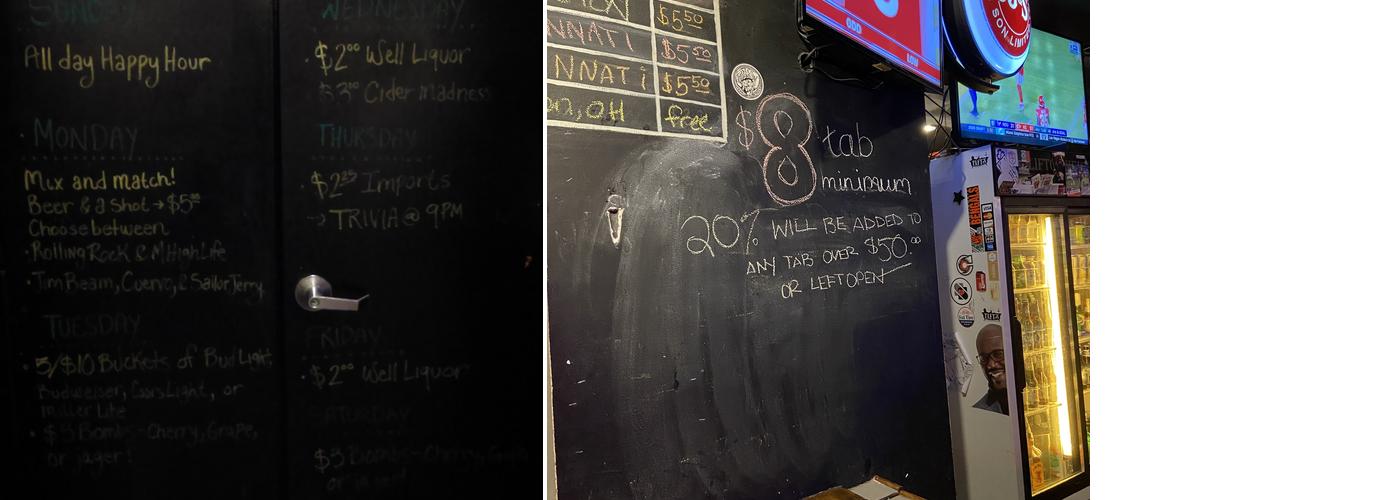 SUNDAY
All day Happy Hour
MONDAY
Mix and match!
Beer & a shot → $5⁰⁰
Choose between
·Rolling Rock & M High Life
·Jim Beam, Cuervo, & Sailor Jerry
TUESDAY
· 5/$10 Buckets of Bud Light
Budweiser, Coors Light, or
Miller Lite
· $3 Bombs-Cherry, Grape,
or jager!
WEDNESDAY
· $2⁰⁰ Well Liquor
$3⁰⁰ Cider Madness
THURSDAY
· $2²⁵ Imports
→ TRIVIA @ 9PM
FRIDAY
· $2⁰⁰ Well Liquor
SATURDAY
$3 Bombs-Cherry, Grape
$5⁵⁰
NNATI $5⁵⁰
NNATi $5⁵⁰
on, OH free
$8 tab
minimum
20% WILL BE ADDED TO
ANY TAB OVER $50.⁰⁰
OR LEFT OPEN
ODD
LOW
SON-LIMIT
BENGALS